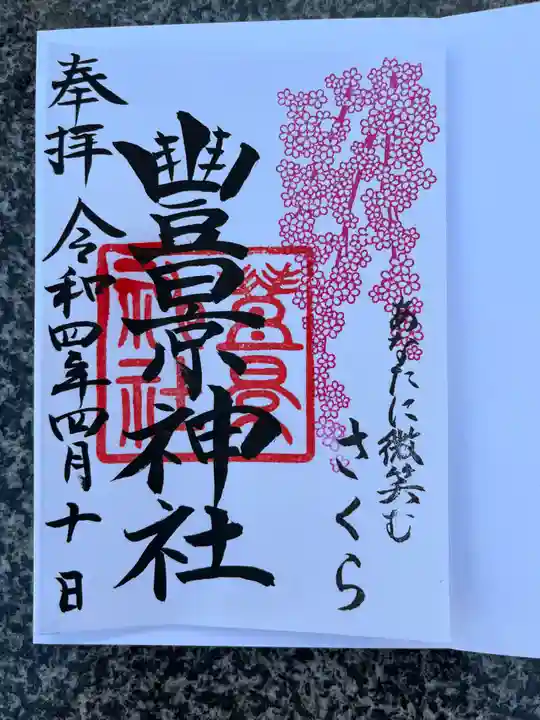 あなたに微笑む
さくら
豊景神社
奉拝 令和四年四月十日